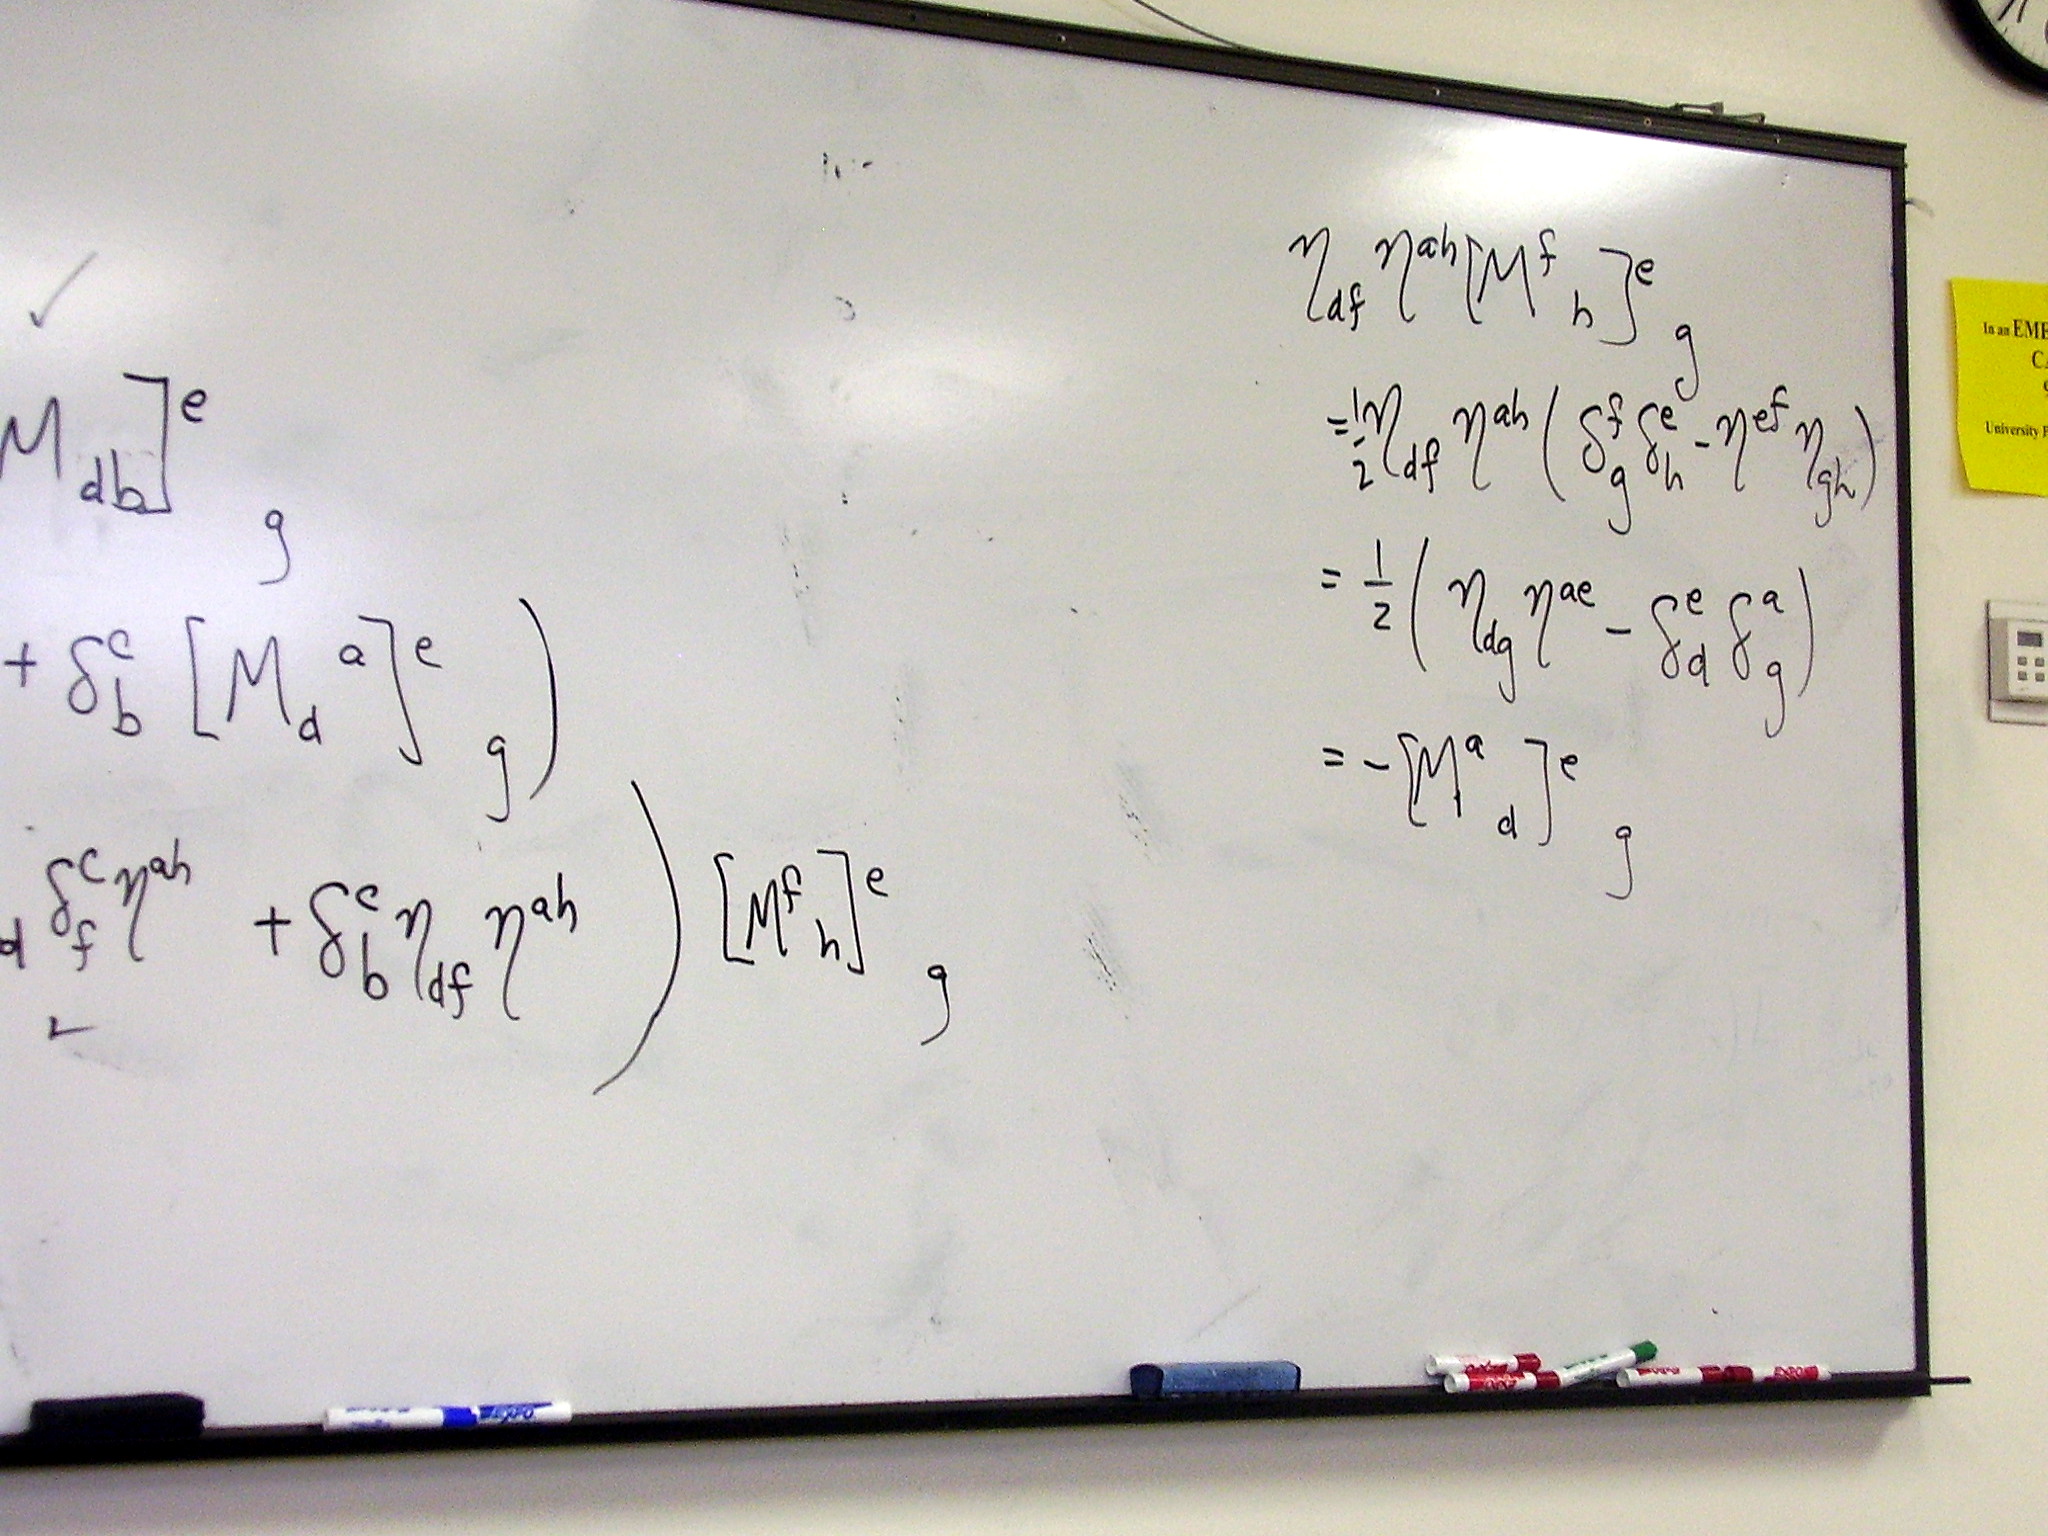 ✓
M_{db}]^e_g
+ δ^c_b [M_d^a]^e_g)
d δ^c_f η^{ah} + δ^c_b η_{df} η^{ah}) [M^f_h]^e_g
η_{df} η^{ah} [M^f_h]^e_g
= ½ η_{df} η^{ah} (δ^f_g δ^e_h - η^{ef} η_{gh})
= ½ (η_{dg} η^{ae} - δ^e_d δ^a_g)
= - [M^a_d]^e_g
In an EME
University
EXPO